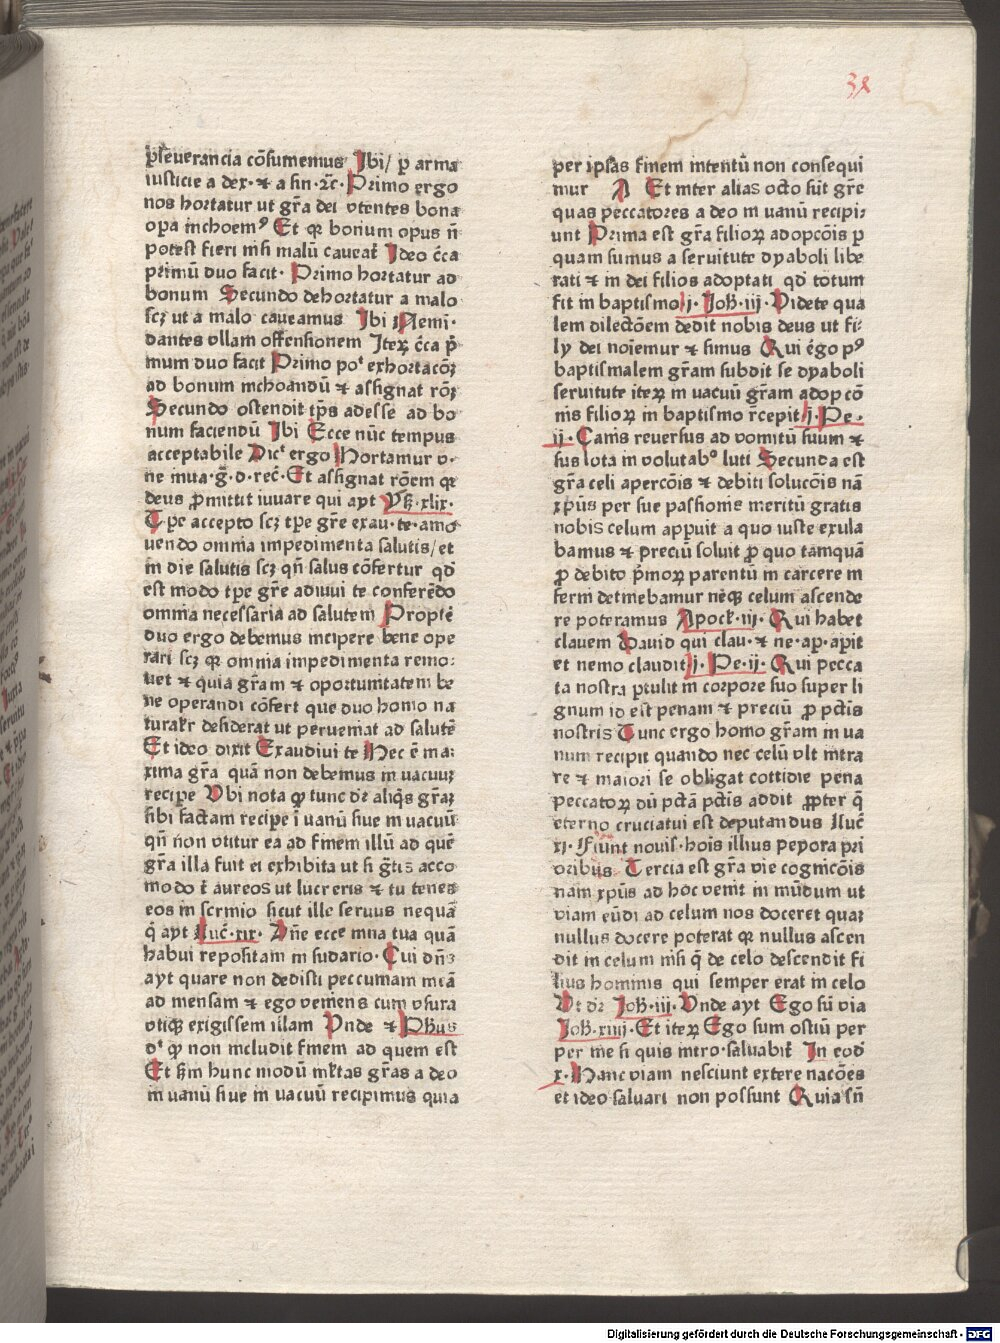 38
pſeuerancia cōſumemus Ibi/ p̱ arma
iuſticie a dex· ⁊ a ſin ·⁊c̄· Primo ergo
nos hortatur ut gr̄a dei vtentes bona
oꝑa inchoemꝰ Et qꝛ bonum opus n̄
poteſt fieri niſi malū caueat᷑ Ideo c̄ca
pͥmū duo facit · Primo hortatur ad
bonum Secundo dehortatur a malo
ſcꝫ ut a malo caueamus Ibi Nemi·
dantes vllam offenſionem Iteꝝ c̄ca p̄
mum duo facit Primo poᵗ exhortacōꝫ
ad bonum inchoandū ⁊ aſſignat rōꝫ
Secundo oſtendit tp̄s adeſſe ad bo
num faciendū Ibi Ecce nūc tempus
acceptabile Dicᵗ ergo Hortamur v·
ne in va·g̅·d·rec̄· Et aſſignat rōem qꝛ
deus ꝓmittit iuuare qui ayt Yſ·xlix·
Tpe accepto ſcꝫ tꝑe gr̄e exau·te·amo
uendo omnia impedimenta ſalutis/et
in die ſalutis ſcꝫ qn̄ ſalus cōfertur qd̄
eſt modo tpe gr̄e adiuui te conferēdo
omnia neceſſaria ad ſalutem Propte͂
duo ergo debemus incipere bene ope
rari ſcꝫ qꝛ omnia impedimenta remo:
uet ⁊ quia gr̄am ⁊ oportunitatem be
ne operandi cōfert que duo homo na
turalr̄ deſiderat ut perueniat ad ſalutē
Et ideo dixit Exaudiui te Hec ē ma:
xima gr̄a quā non debemus in vacuuꝫ
recipe Vbi nota ꝙ tunc dr̄ aliq̄s gr̄aꝫ
ſibi factam recipe ī vanū ſiue in vacuū
qn̄ non vtitur ea ad finem illū ad quē
gr̄a illa fuit ei exhibita ut ſi g̅tis acco
modo t᷑ aureos ut lucreris ⁊ tu tenes
eos in ſcrinio ſicut ille ſeruus nequā
q̄ ayt Luc̄·xix· Dn̄e ecce mna tua quā
habui repoſitam in ſudario· Cui dn̄s
ayt quare non dediſti peccuniam meā
ad menſam ⁊ ego veniens cum vſura
vtiqꝫ exigiſſem illam Vnde ⁊ Phus
dᵗ ꝙ non includit finem ad quem eſt
Et ſm hunc modū mltas gr̄as a deo
in vanū ſiue in vacuū recipimus quia
per ipſas finem intentū non conſequi
mur A Et inter alias octo ſūt gr̄e
quas peccatores a deo in vanū recipi:
unt Prima eſt gr̄a filioꝝ adopcōis p
quam ſumus a ſeruitute dyaboli libe
rati ⁊ in dei filios adoptati qd̄ totum
fit in baptiſmo j· Joh·iij· Videte qua
lem dilectōem dedit nobis deus ut fi:
ly dei noīemur ⁊ ſimus Qui ergo pꝰ
baptiſmalem gr̄am ſubdit ſe dyaboli
ſeruitute iteꝝ in vacuū gr̄am adopcō
nis filioꝝ in baptiſmo r̄cepit j·Pe·
ij· Canis reuerſus ad vomitū ſuum ⁊
ſus lota in volutabᵒ luti Secunda eſt
gr̄a celi apercōis ⁊ debiti ſolucōis nā
xp̄us per ſue paſſionis meritū gratis
nobis celum apꝑuit a quo iuſte exula
bamus ⁊ preciū ſoluit ꝓ quo tamquā
ꝓ debito p̄moꝝ parentū in carcere in
ferni detinebamur neqꝫ celum aſcende
re poteramus Apocꝭ·iij· Qui habet
clauem Dauid qui clau·⁊ ne·ap·apit
et nemo claudit j· Pe·ij· Qui pecca
ta noſtra ꝑtulit in corpore ſuo ſuper li
gnum id eſt penam ⁊ preciū ꝓ pctis
noſtris Tunc ergo homo gr̄am in va
num recipit quando nec celū vlt intra
re ⁊ maiori ſe obligat cottidie pena
peccatoꝝ dū pctā pctis addit ꝓpter q̄
eterno cruciatui eſt deputandus Luc̄
xj· Fiunt nouiſ·hoīs illius peyora pri
oribus Tercia eſt gr̄a vie cognicōis
nam xp̄us ad hoc venit in mūdum ut
viam eūdi ad celum nos doceret quaꝫ
nullus docere poterat qꝛ nullus aſcen
dit in celum niſi q̄ de celo deſcendit fi
lius hominis qui ſemper erat in celo
Vt dr̄ Joh·iij· Vnde ayt Ego ſū via
Joh·xiiij· Et iteꝝ Ego ſum oſtiū per
per me ſi quis intro·ſaluabit᷑ In eod̄
x· Hanc viam neſciunt extere nacōes
et ideo ſaluari non poſſunt Quia ſn̄
Digitalisierung gefördert durch die Deutsche Forschungsgemeinschaft - DFG